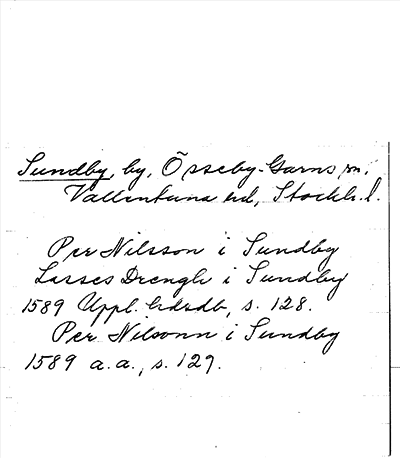 Sundby, by, Össeby-Garns sn,
Vallentuna hd, Stockh. l.
Per Nilsson i Sundby
Lasses Drengh i Sundby
1589 Uppl. hdrdb, s. 128.
Per Nilsonn i Sundby
1589 a.a., s. 129.